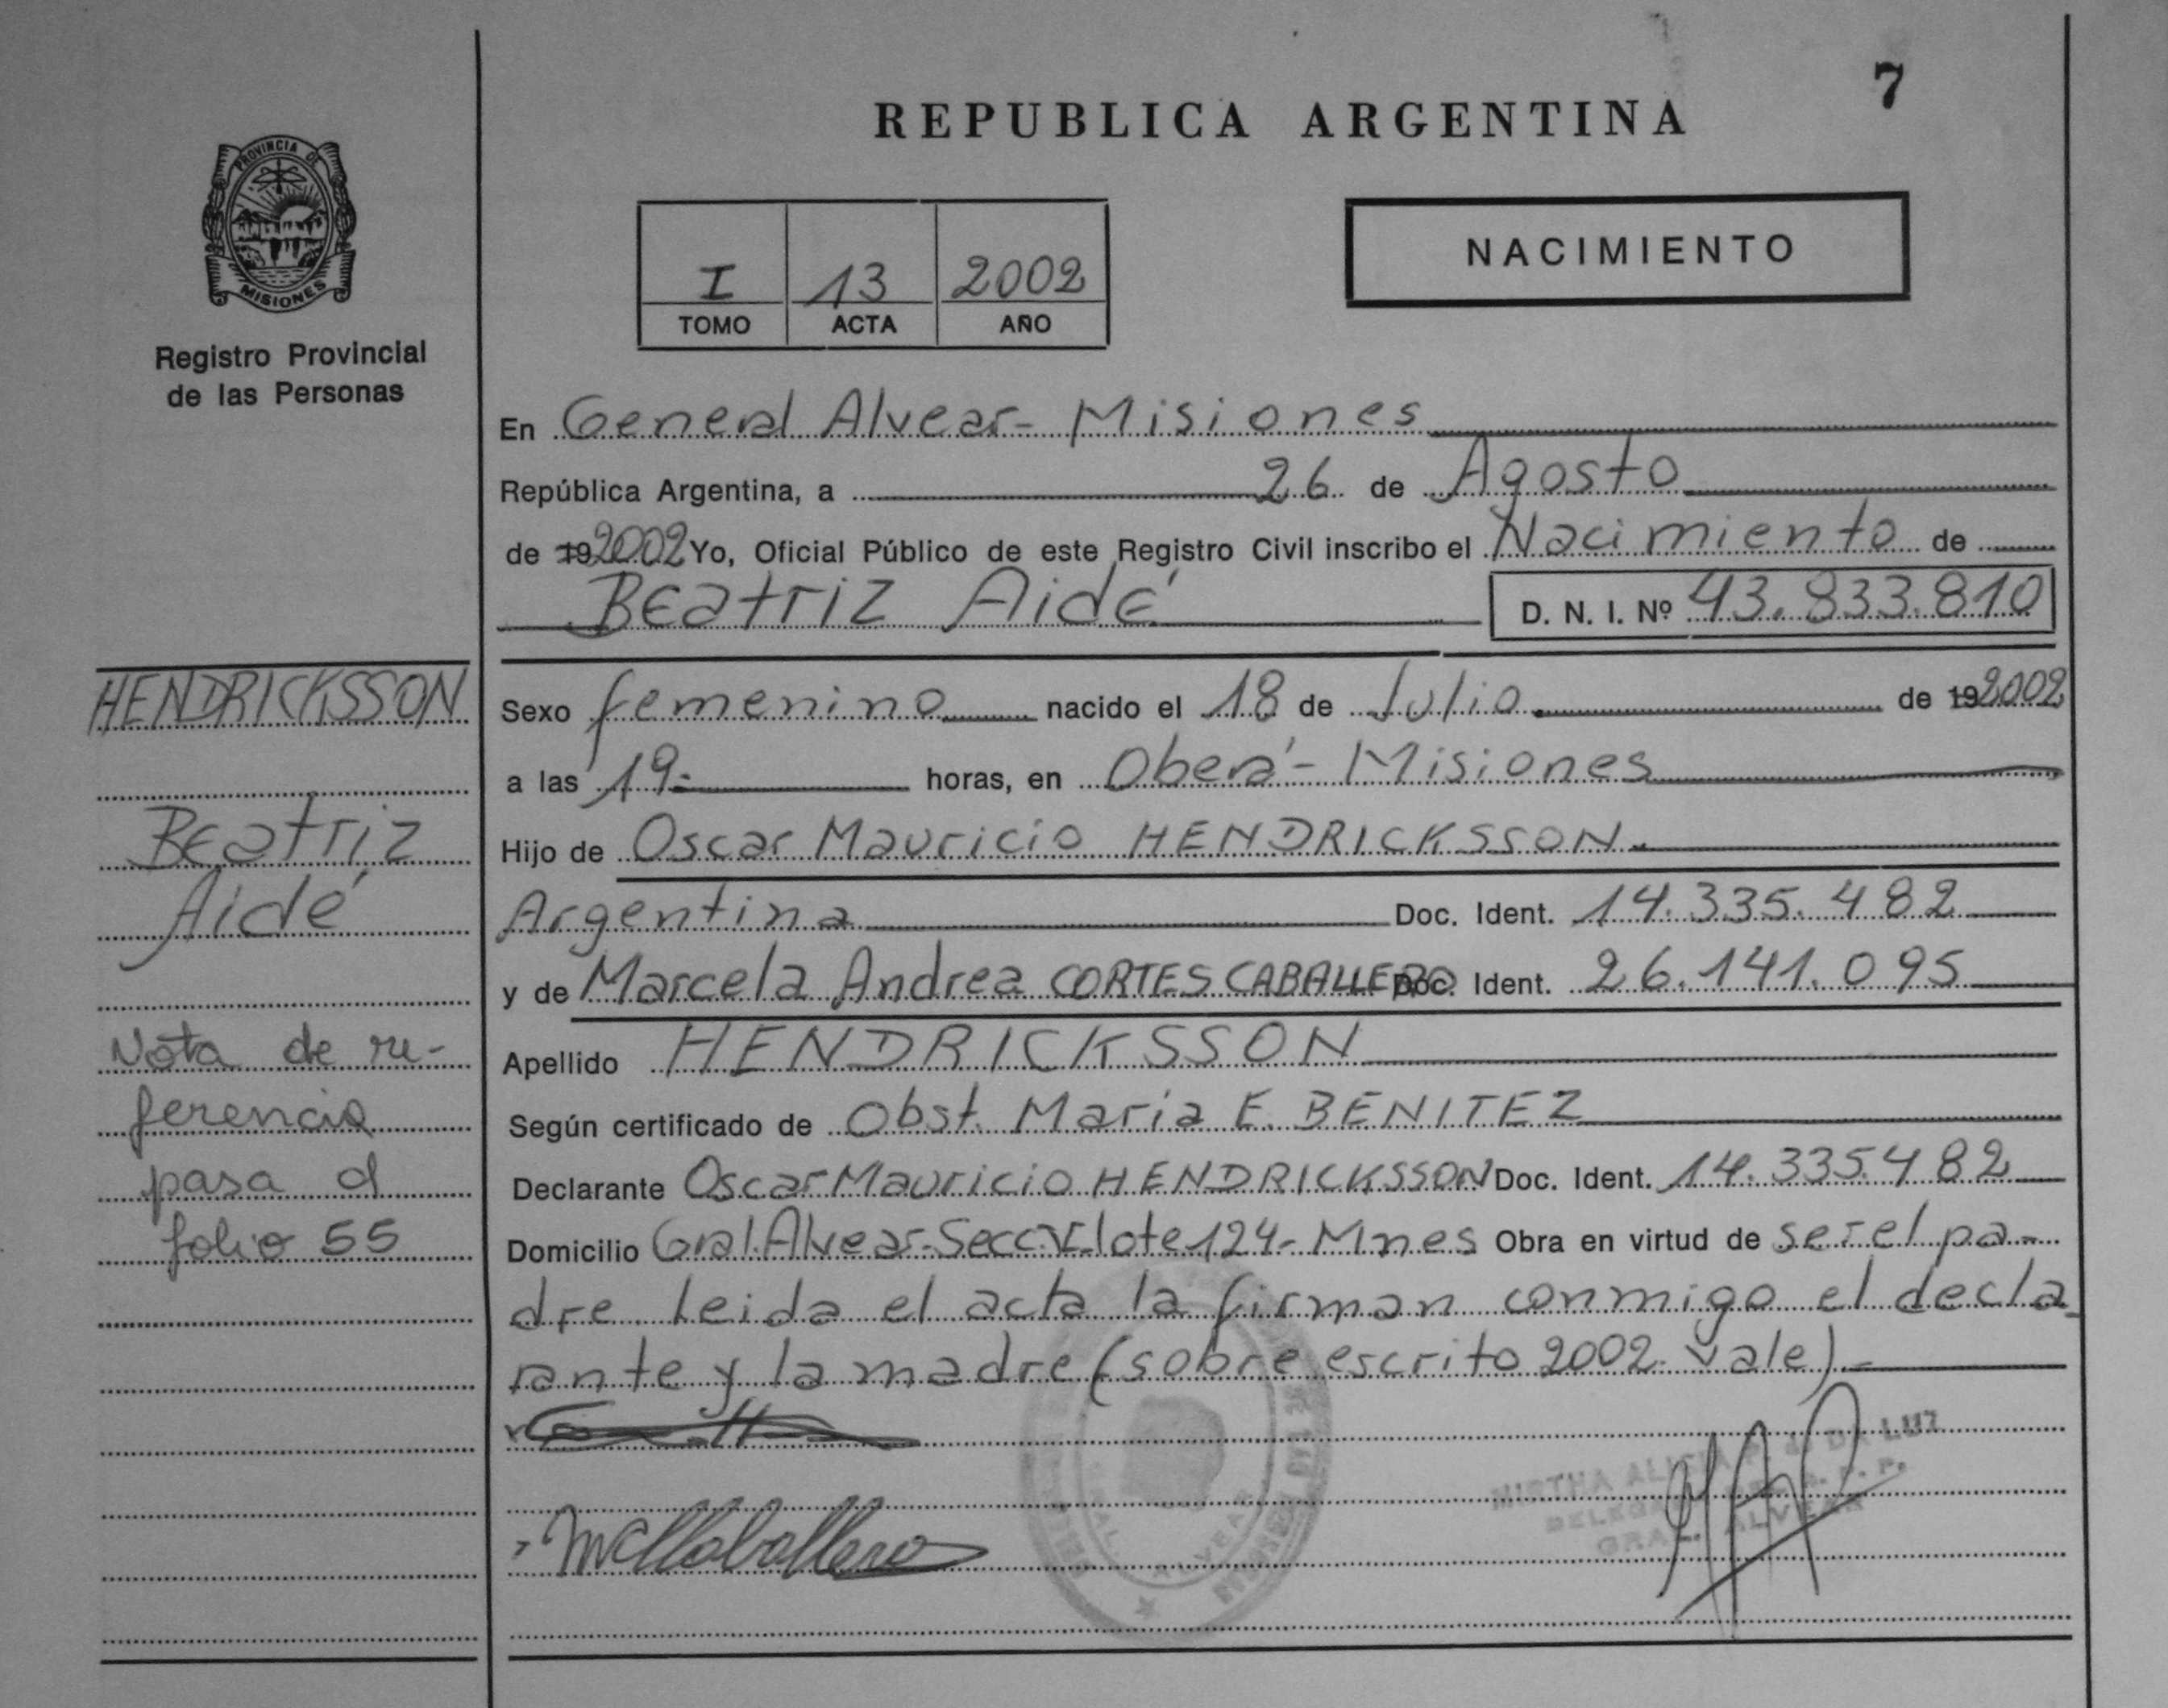 REPUBLICA ARGENTINA
7
PROVINCIA DE
MISIONES
Registro Provincial
de las Personas
I 13 2002
TOMO ACTA AÑO
NACIMIENTO
En General Alvear - Misiones
República Argentina, a 26 de Agosto
de 19 2002 Yo, Oficial Público de este Registro Civil inscribo el Nacimiento de
Beatriz Aidé D. N. I. Nº 43.833.810
HENDRICKSSON
Beatriz
Aidé
Nota de re-
ferencia
pasa al
folio 55
Sexo femenino nacido el 18 de Julio de 19 2002
a las 19- horas, en Oberá - Misiones
Hijo de Oscar Mauricio HENDRICKSSON
Argentina Doc. Ident. 14.335.482
y de Marcela Andrea CORTES CABALLERO Doc. Ident. 26.141.095
Apellido HENDRICKSSON
Según certificado de Obst. Maria E. BENITEZ
Declarante Oscar Mauricio HENDRICKSSON Doc. Ident. 14.335.482
Domicilio Gral. Alvear - Secc. V. lote 124 - Mnes Obra en virtud de ser el pa-
dre. Leida el acta la firman conmigo el decla-
rante y la madre (sobre escrito 2002 - vale) -
MIRTHA ALICIA DA LUZ
GRAL. ALVEAR